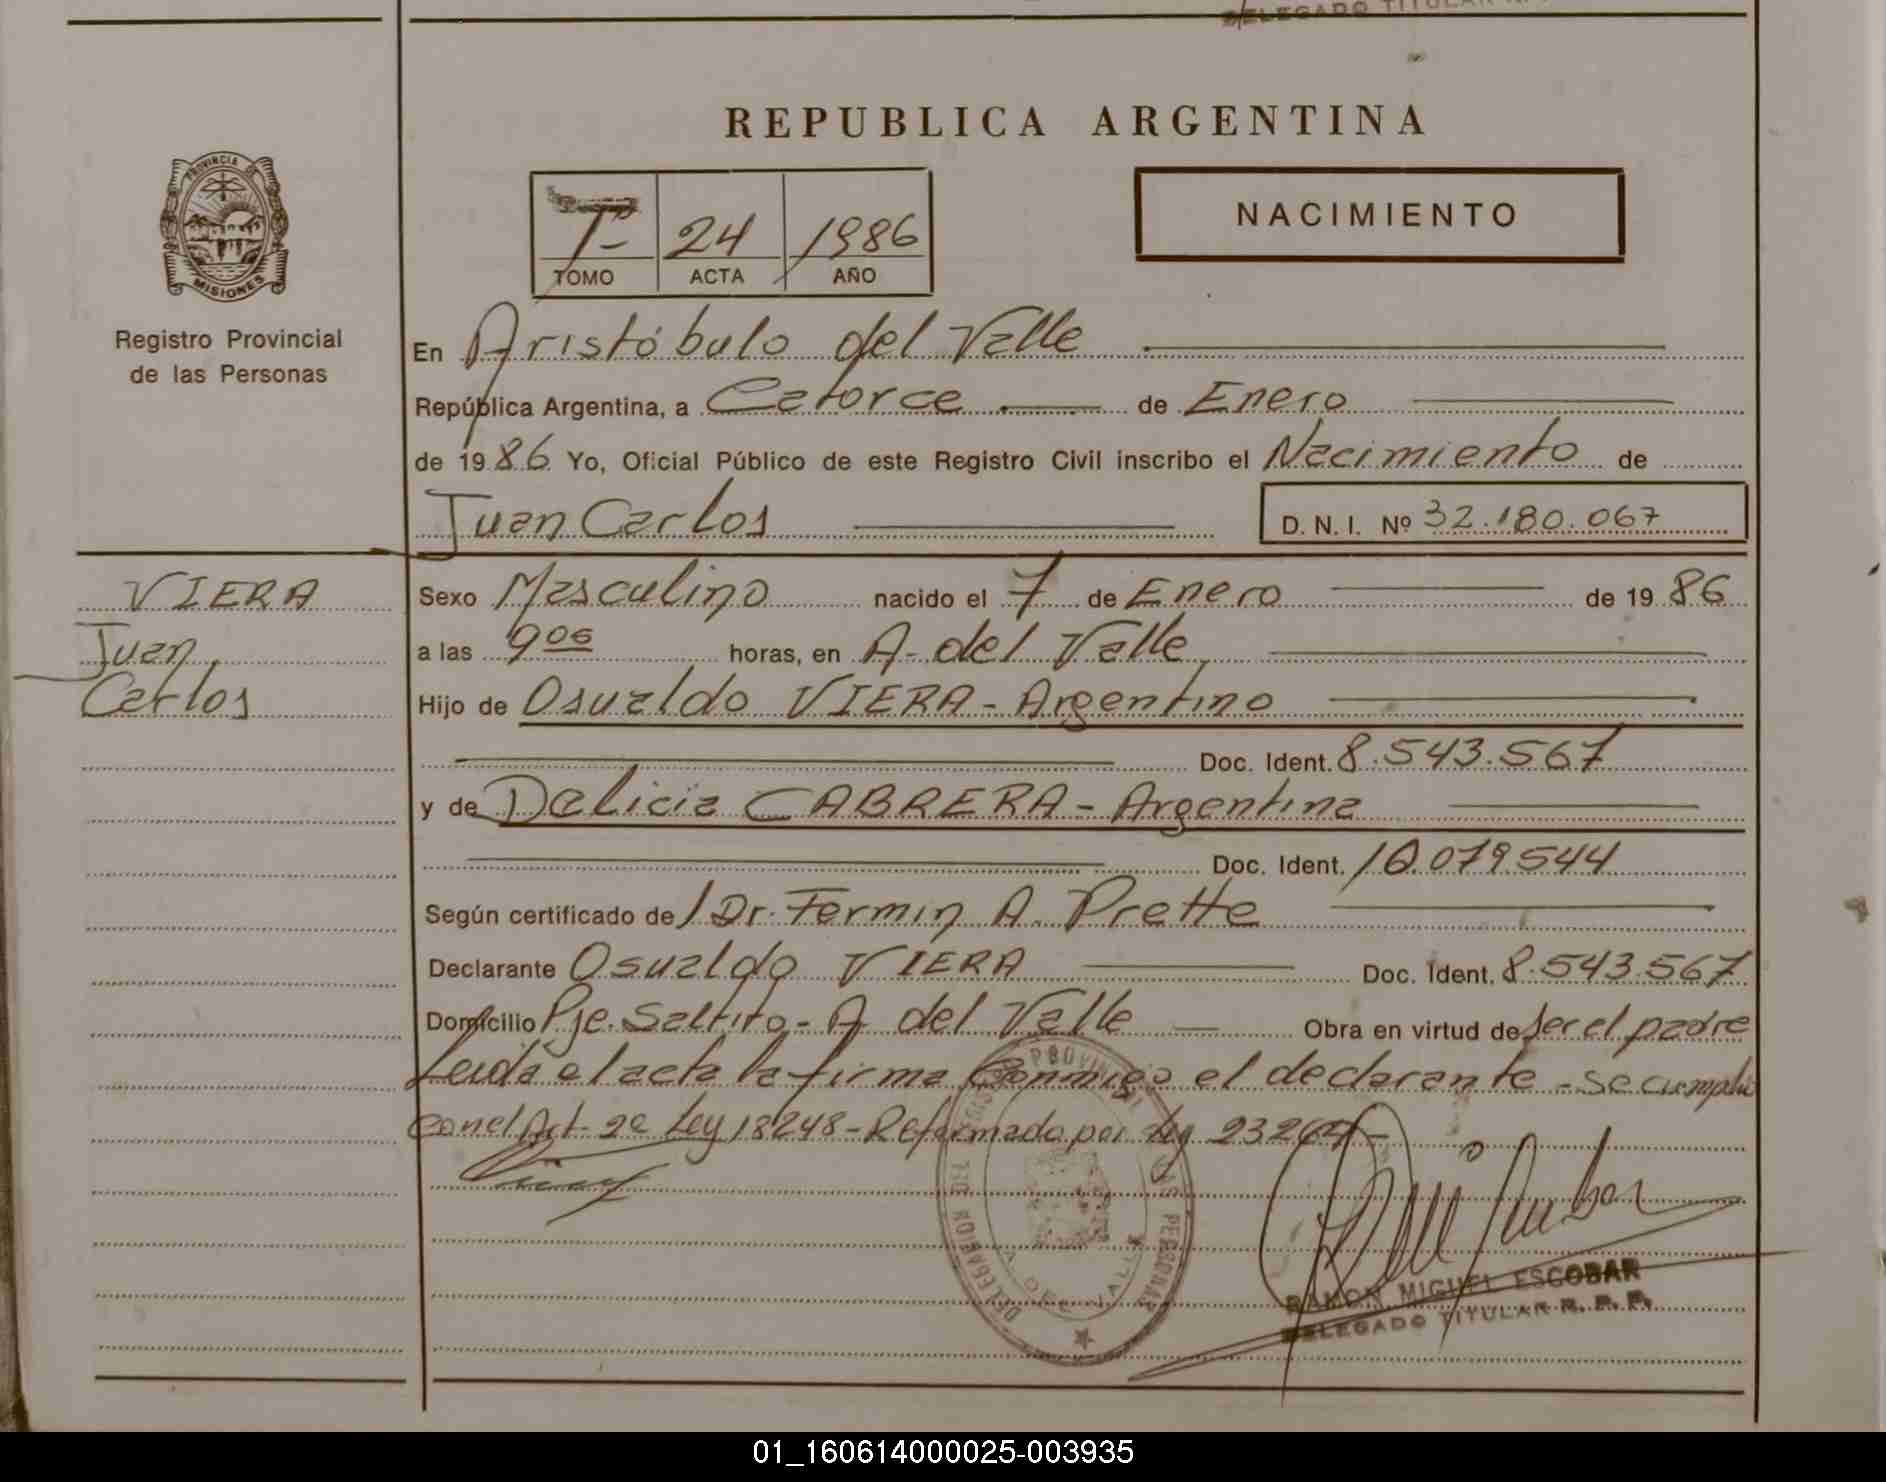 DELEGADO TITULAR R.
REPUBLICA ARGENTINA
PROVINCIA DE
MISIONES
Registro Provincial
de las Personas
Tº 24 1986
TOMO ACTA AÑO
NACIMIENTO
En Aristóbulo del Valle
República Argentina, a Catorce de Enero
de 1986 Yo, Oficial Público de este Registro Civil inscribo el Nacimiento de
Juan Carlos D. N. I. Nº 32.180.067
VIERA
Juan
Carlos
Sexo Masculino nacido el 7 de Enero de 1986
a las 9 06 horas, en A. del Valle
Hijo de Osvaldo VIERA - Argentino
Doc. Ident. 8.543.567
y de Delicia CABRERA - Argentina
Doc. Ident. 10.079.544
Según certificado del Dr. Fermin A. Prette
Declarante Osvaldo VIERA Doc. Ident. 8.543.567
Domicilio Pje. Saltito - A del Valle Obra en virtud de ser el padre
Leída el acta la firma conmigo el declarante - se cumplio
con el Art. 2º Ley 18248 - Reformado por Ley 23264 -
DELEGACION REGISTRO PROVINCIAL DE LAS PERSONAS
A. DEL VALLE
RAMON MIGUEL ESCOBAR
DELEGADO TITULAR R. P. P.
01_160614000025-003935